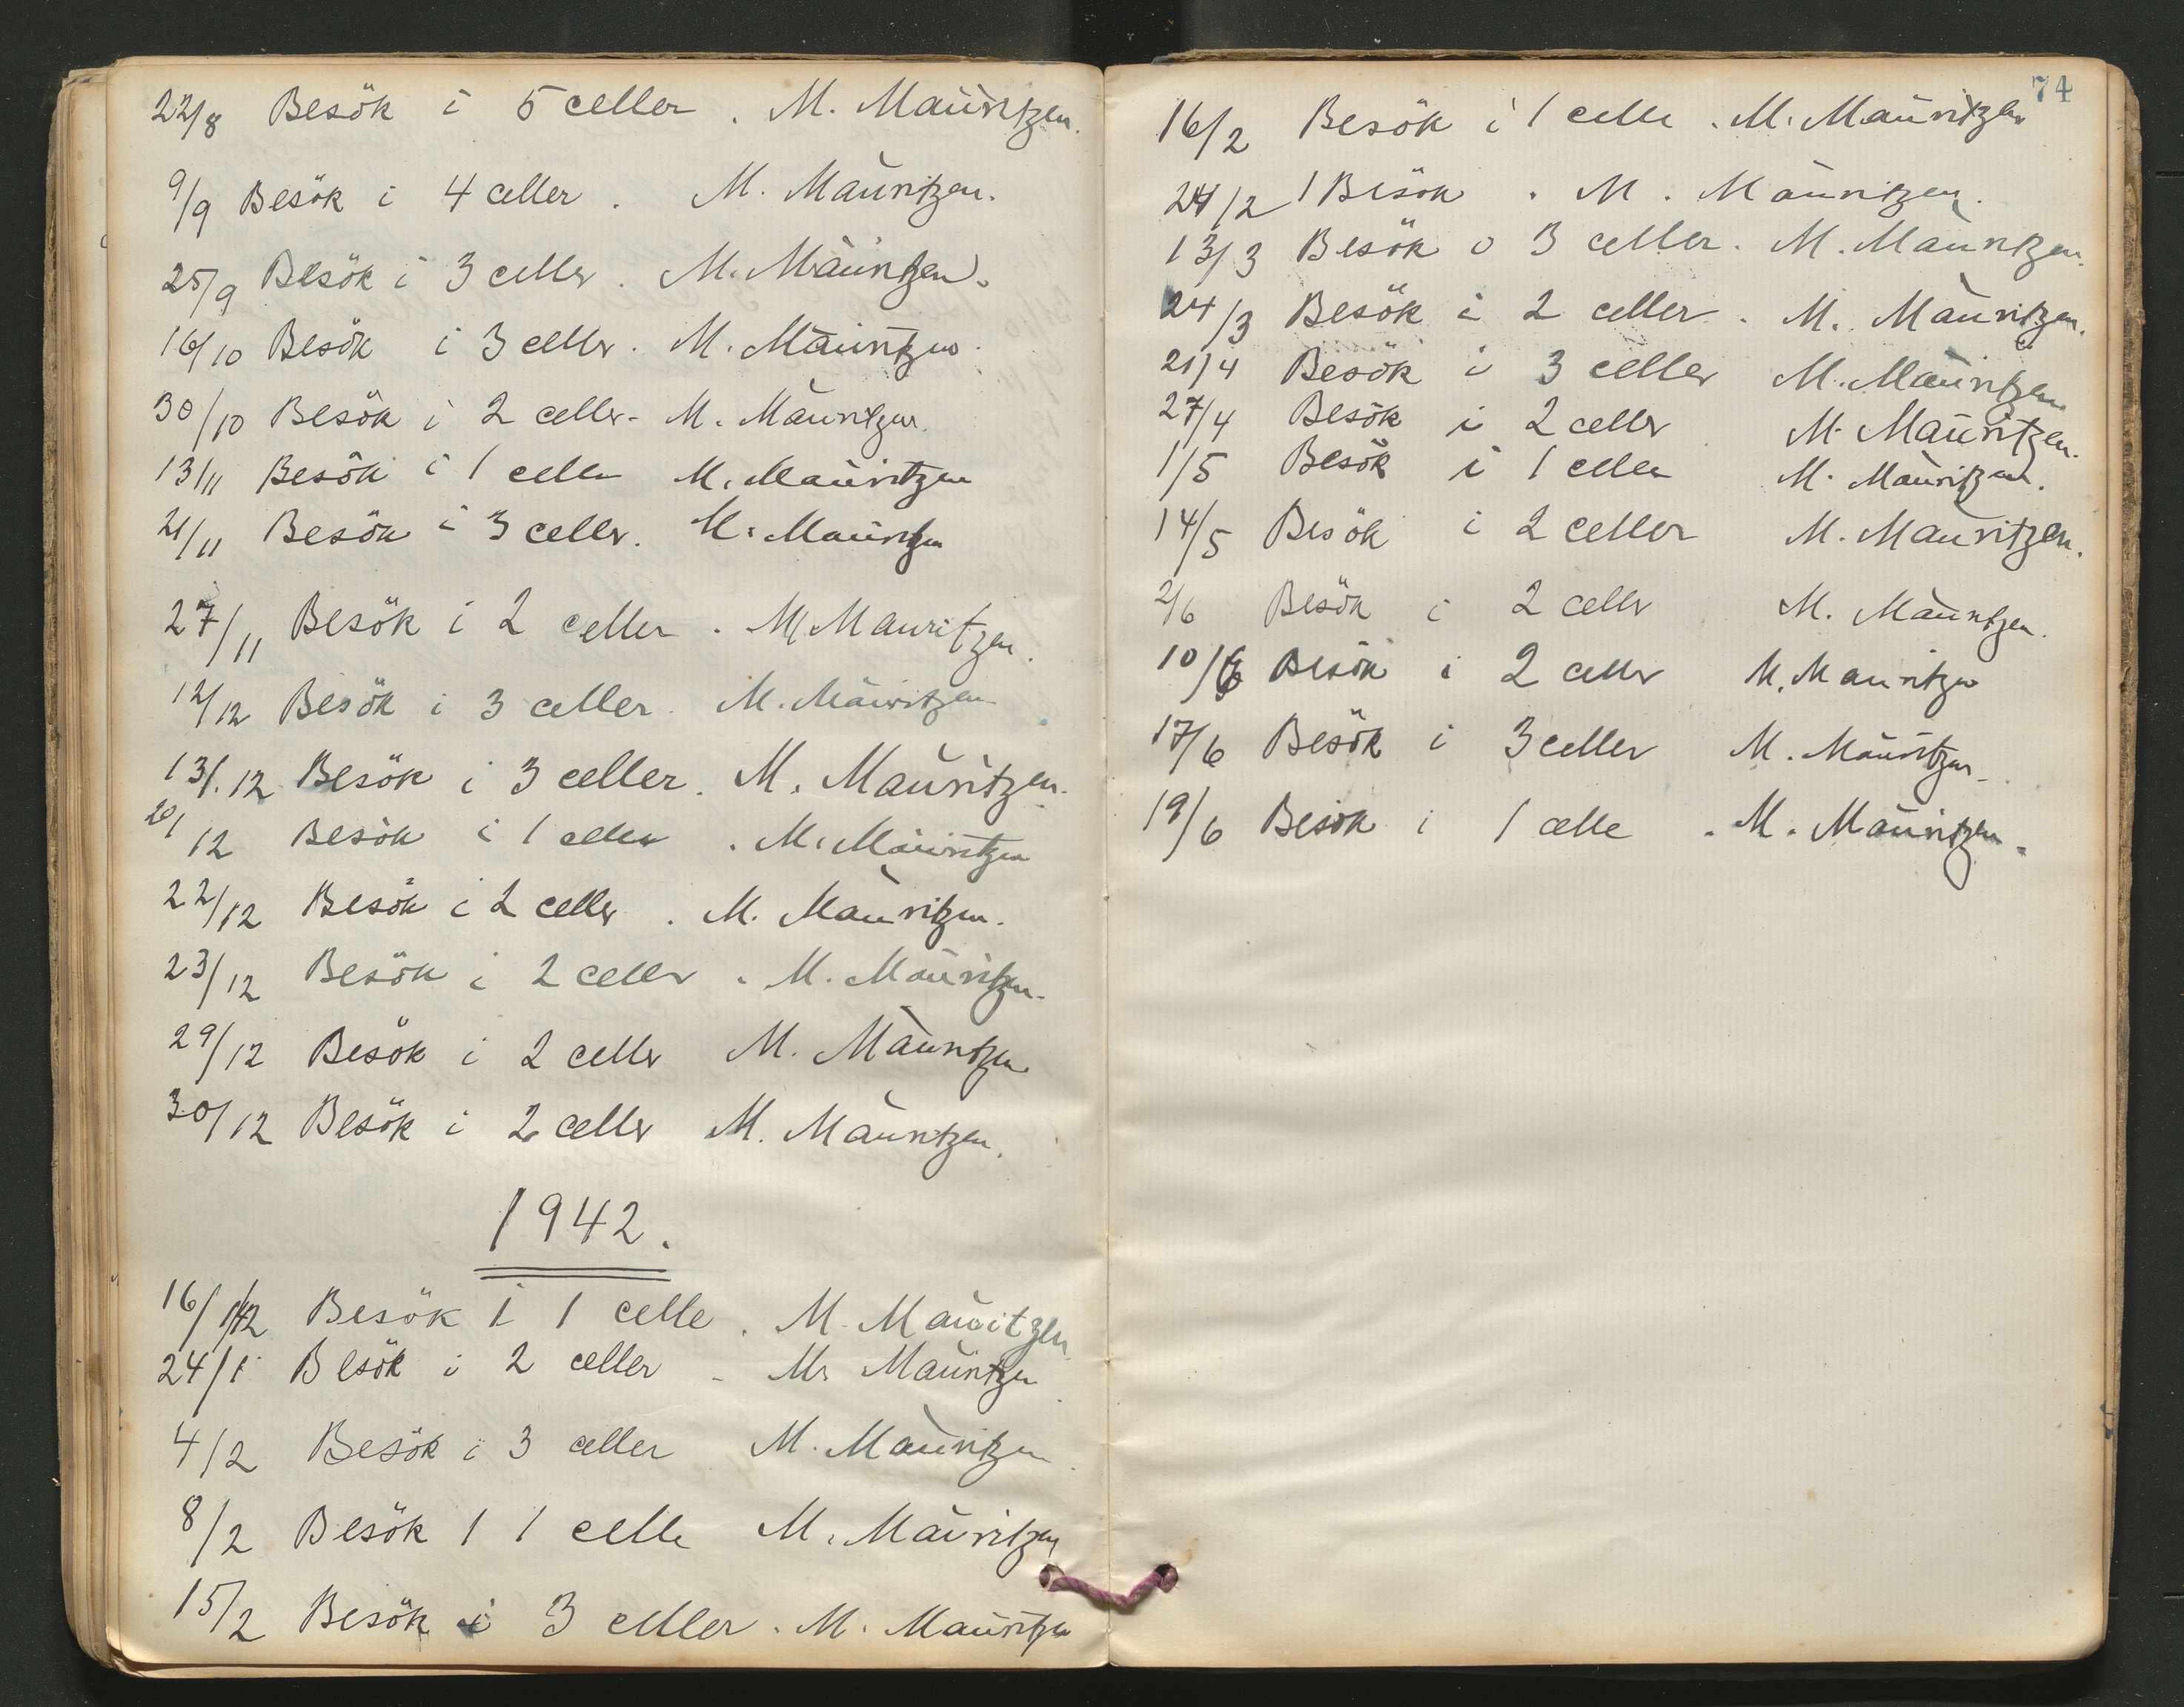 22/8 Besök i 5 celler . M. Mauritzen.
9/9 Besök i 4 celler . M. Mauritzen.
25/9 Besök i 3 celler . M. Mauritzen.
16/10 Besök i 3 celler . M. Mauritzen.
30/10 Besök i 2 celler - M. Mauritzen.
13/11 Besök i 1 celle M. Mauritzen
21/11 Besök i 3 celler. M. Mauritzen
27/11 Besök i 2 celler . M Mauritzen.
12/12 Besök i 3 celler. M. Mauritzen
13/.12 Besök i 3 celler. M. Mauritzen.
20/12 Besök i 1 celle . M. Mauritzen
22/12 Besök i 2 celler . M. Mauritzen.
23/12 Besök i 2 celler . M. Mauritzen.
29/12 Besök i 2 celler M. Mauritzen
30/12 Besök i 2 celler M. Mauritzen.
1942.
16/1 42 Besök i 1 celle . M. Mauritzen
24/1 Besök i 2 celler - M. Mauritzen
4/2 Besök i 3 celler M. Mauritzen
8/2 Besök i 1 celle M. Mauritzen
15/2 Besök i 3 celler . M. Mauritzen
74
16/2 Besök i 1 celle . M. Mauritzen
24/2 1 Besök . M. Mauritzen.
13/3 Besök o 3 celler. M. Mauritzen.
24/3 Besök i 2 celler . M. Mauritzen.
21/4 Besök i 3 celler M. Mauritzen
27/4 Besök i 2 celler M. Mauritzen.
1/5 Besök i 1 celle M. Mauritzen.
14/5 Besök i 2 celler M. Mauritzen.
2/6 Besök i 2 celler M. Mauritzen.
10/6 Besök i 2 celler M. Mauritzen
17/6 Besök i 3 celler M. Mauritzen
19/6 Besök i 1 celle . M. Mauritzen.